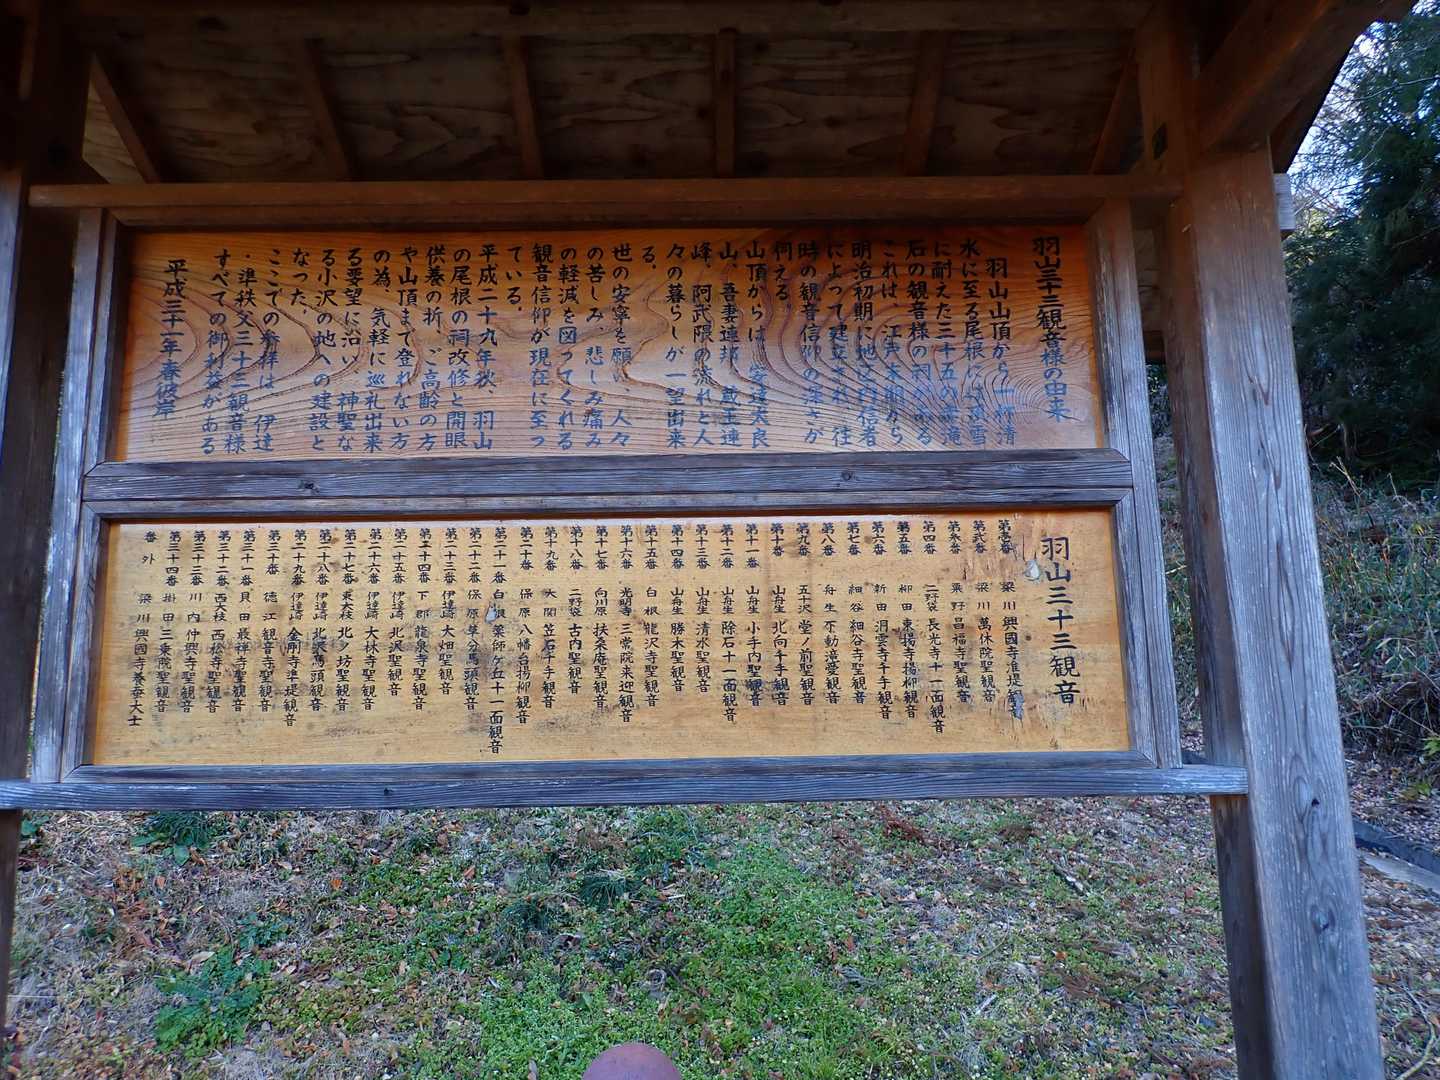 羽山三十三観音様の由来
羽山山頂から一杯清
水に至る尾根には風雪
に耐えた三十五の素滝
石の観音様の祠がある
これは、江戸末期から
明治初期に地元の信者
によって建立され、往
時の観音信仰の深さが
伺える。
山頂からは、安達太良
山、吾妻連邦、蔵王連
峰、阿武隈の流れと人
々の暮らしが一望出来
る。
世の安寧を願い、人々
の苦しみ、悲しみ痛み
の軽減を図ってくれる
観音信仰が現在に至っ
ている。
平成二十九年秋、羽山
の尾根の祠改修と開眼
供養の折、ご高齢の方
や山頂まで登れない方
の為、気軽に巡礼出来
る要望に沿い、神聖な
る小沢の地への建設と
なった。
ここでの参拝は、伊達
・準秩父三十三観音様
すべての御利益がある
平成三十一年春彼岸
羽山三十三観音
第壱番 梁川興國寺准堤観音
第弐番 梁川萬休院聖観音
第参番 粟野昌福寺聖観音
第四番 二野袋長光寺十一面観音
第五番 柳田東揚寺揚柳観音
第六番 新田洞雲寺千手観音
第七番 細谷細谷寺聖観音
第八番 舟生不動滝愛観音
第九番 五十沢堂ノ前聖観音
第十番 山舟生北向千手観音
第十一番 山舟生小手内聖観音
第十二番 山舟生除石十一面観音
第十三番 山舟生清水聖観音
第十四番 山舟生勝木聖観音
第十五番 白根龍沢寺聖観音
第十六番 光明寺三常院来迎観音
第十七番 向川原扶桑庵聖観音
第十八番 二野袋古内聖観音
第十九番 大関笠石千手観音
第二十番 保原八幡台揚柳観音
第二十一番 白根薬師ケ丘十一面観音
第二十二番 保原草分馬頭観音
第二十三番 伊達崎大畑聖観音
第二十四番 下郡龍泉寺聖観音
第二十五番 伊達崎北沢聖観音
第二十六番 伊達崎大林寺聖観音
第二十七番 東大枝北ノ坊聖観音
第二十八番 伊達崎北沢馬頭観音
第二十九番 伊達崎金剛寺準堤観音
第三十番 徳江観音寺聖観音
第三十一番 貝田最禅寺聖観音
第三十二番 西大枝西松寺聖観音
第三十三番 川内仲興寺聖観音
第三十四番 掛田三乗院聖観音
番外 梁川興國寺養蚕大士